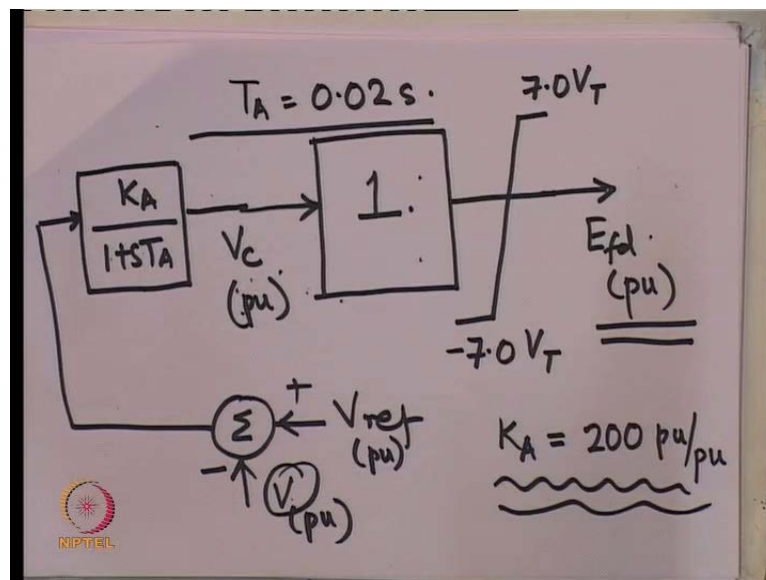 T_A = 0.02 s.
7.0 V_T
K_A
1+sT_A
V_c
(pu)
1.
E_fd.
(pu)
-7.0 V_T
+
Σ
V_ref
(pu)
-
V
(pu)
K_A = 200 pu/pu
NPTEL